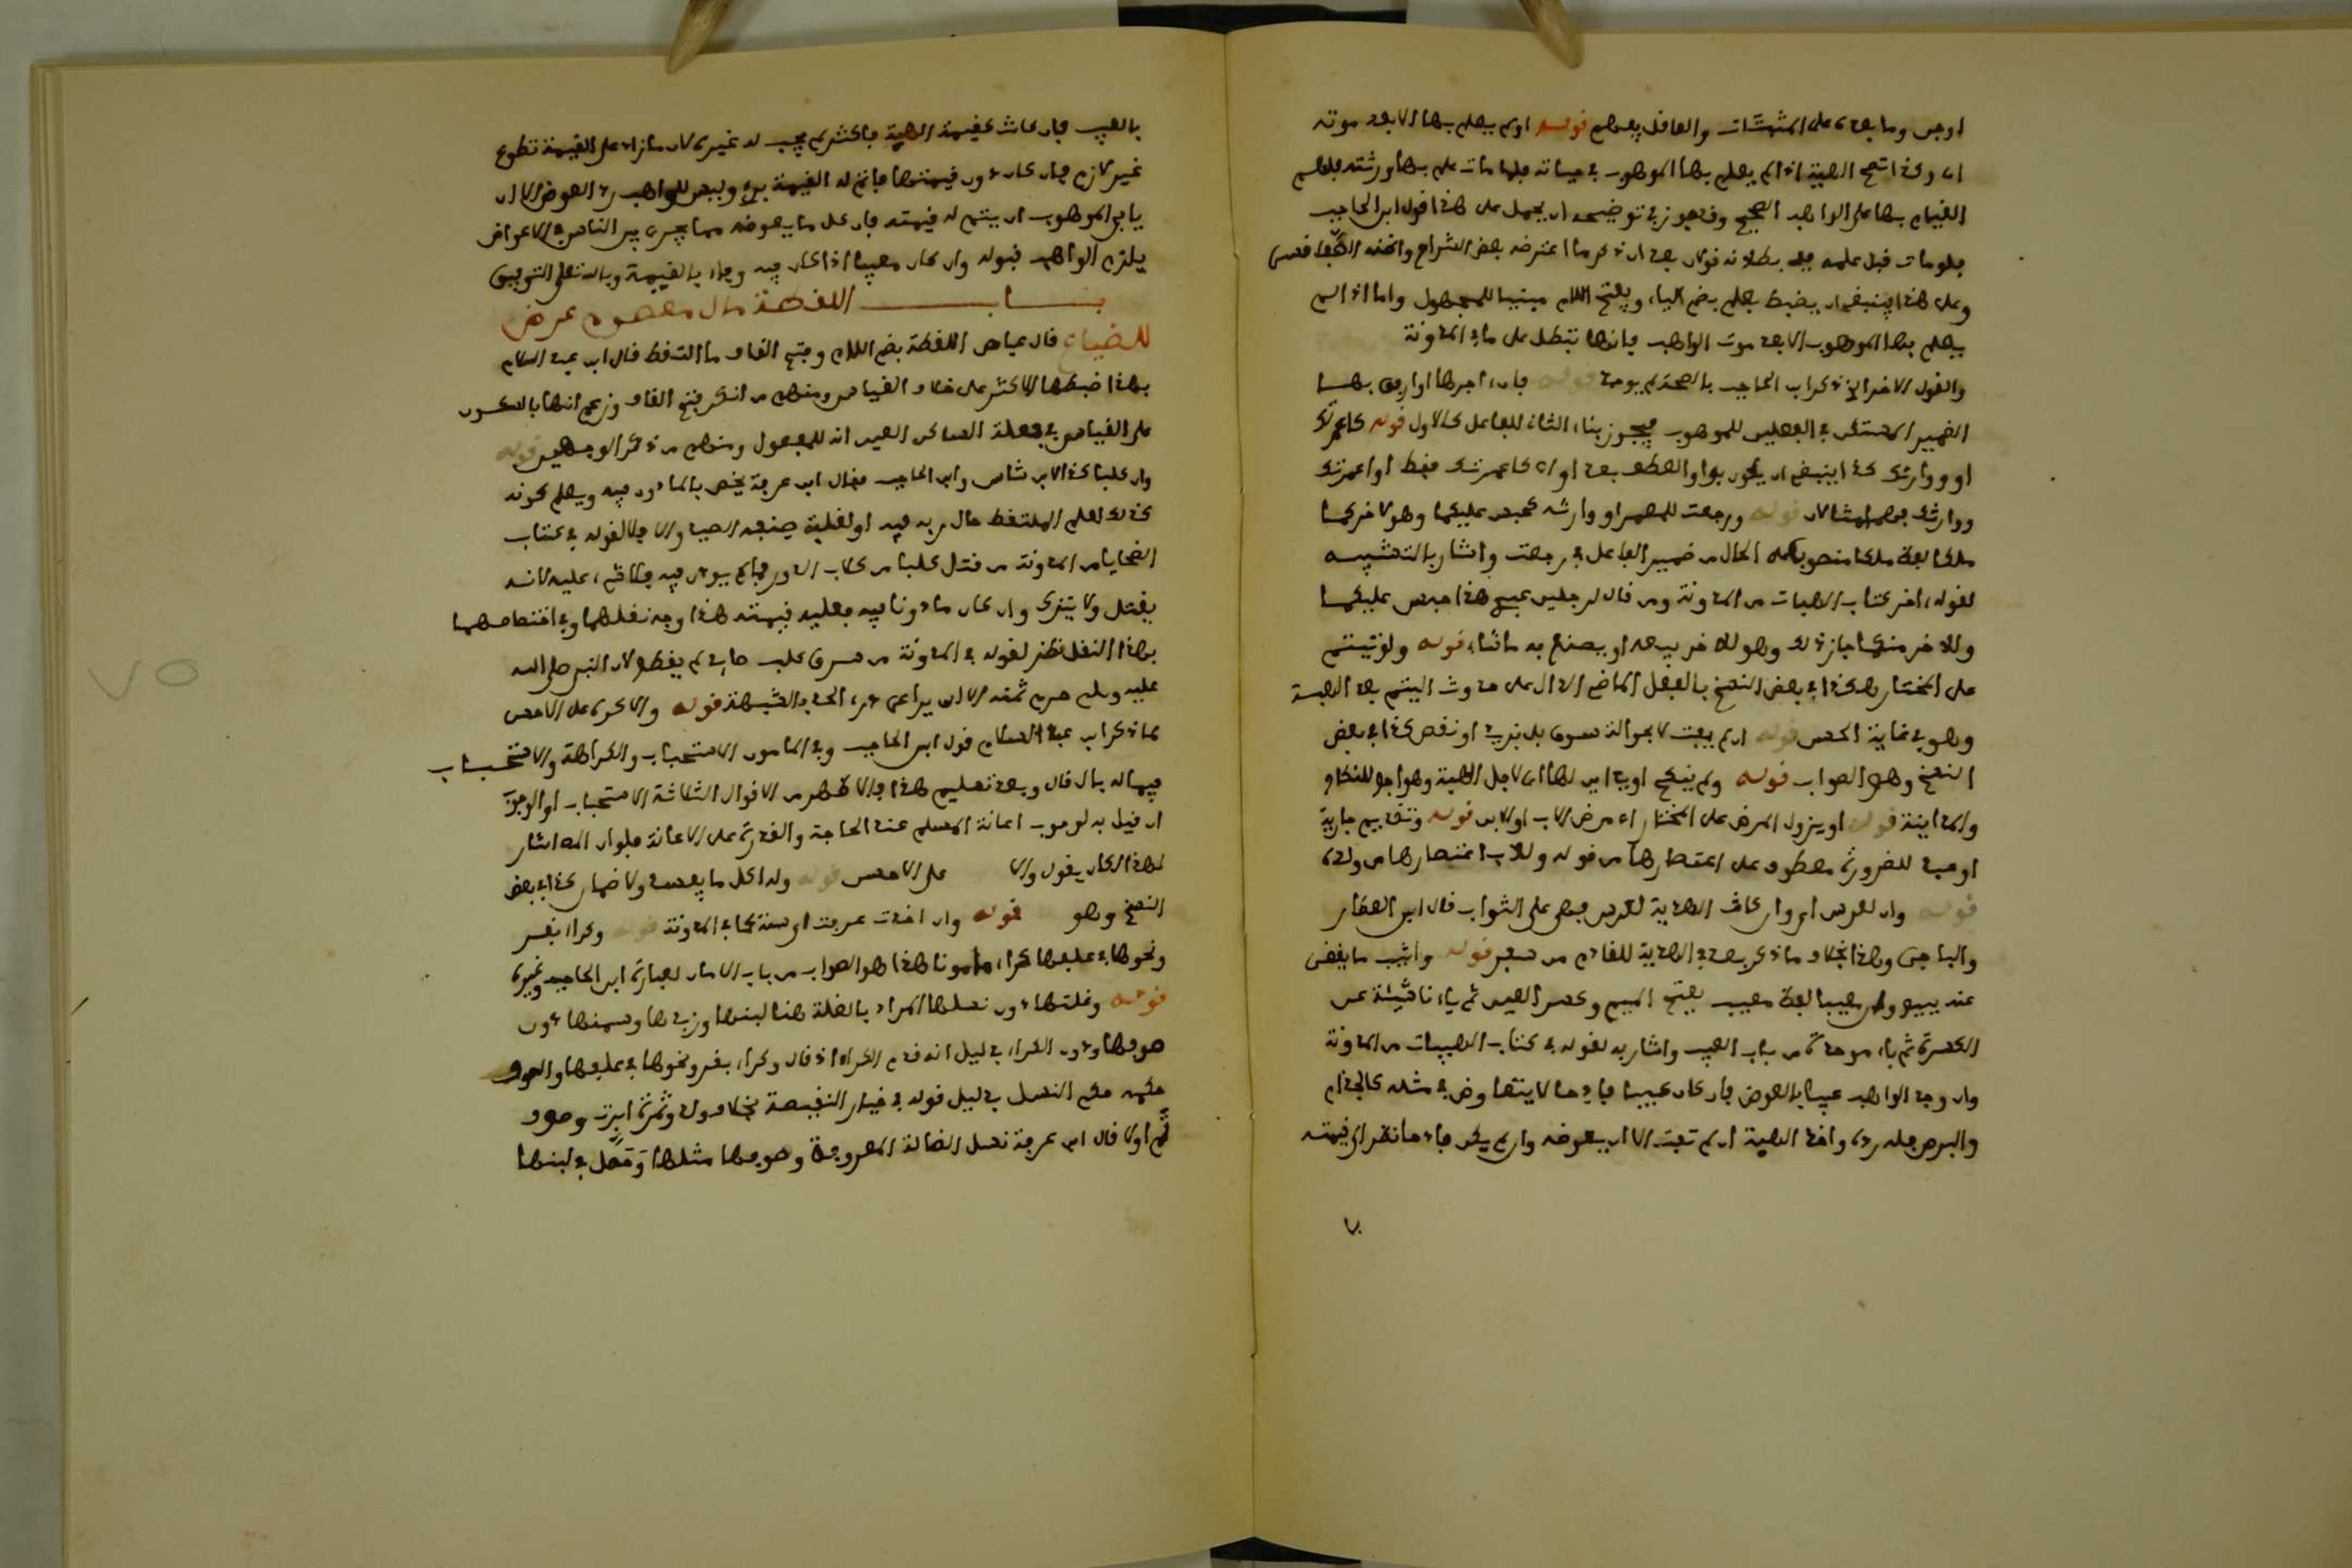 اوجس وما بعده على المشهّات والعاقل يعلم قوله اولم يعلم بها الا بعد موته
اى وكذا تصح الهبة اذا لم يعلم بها الموهوب في حياته فلما مات علم بها ورثته فلهم
القيام بها على الواهب الصحيح وقد جوز في توضيحه ان يحمل على هذا قول ابن الحاجب
فلو مات قبل علمه ففي بطلانه قولان بعد ان ذكر ما اعترضه بعض الشراح
وعلى هذا فينبغي ان يضبط يعلم بضم الياء وفتح اللام مبنيا للمجهول واما اذا لم
يعلم بها الموهوب الا بعد موت الواهب فانها تبطل على ما في المدونة
والقول الاخر الذي ذكر ابن الحاجب بالصحة لم يوجد قوله فان اجرها او ارفق بهما
الضمير المستكن في الفعلين للموهوب فيجوز بناء الثاني للفاعل كالاول قوله كاعمرتك
او ووارثك كذا ينبغي ان يكون بواو العطف بعد او اى كاعمرتك فقط او اعمرتك
ووارثك فهما مثالان قوله ورجعت للمعمر او وارثه كحبس عليكما وهو لاخركما
ملكا لفظ ملكا منصوب على الحال من ضمير الفاعل في رجعت واشار بالتشبيه
لقوله اخر كتاب الهبات من المدونة ومن قال لرجلين عبدي هذا حبس عليكما
وللاخر منكما جاز ذلك وهو للاخر يبيعه او يصنع به ما شاء قوله ولو تيتم
على المختار هكذا في بعض النسخ بالفعل الماضي الدال على حدوث اليتم بعد الهبة
وهو في غاية الحسن قوله ان لم يفت لا بحوالة سوق بل بزيد او نقص كذا في بعض
النسخ وهو الصواب قوله ولم ينكح او يداين لها اى لاجل الهبة وهو اجع للنكاح
والمداينة قوله او يزول المرض على المختار اى مرض الاب او الابن قوله وتقويم جارية
او عبد للضرورة معطوف على اعتصارها من قوله وللاب اعتصارها من ولده
قوله وان لعرس اى وان كانت الهدية لعرس فهي على الثواب قال ابن العطار
والباجي وهذا بخلاف ما ذكر بعد في الهدية للقادم من سفر قوله واثيب ما يقضى
عنه ببيع وان معيبا لفظ معيب بفتح الميم وكسر العين ثم ياء ناشئة عن
الكسرة ثم باء موحدة من باب العيب واشار به لقوله في كتاب الهبات من المدونة
وان وجد الواهب عيبا بالعوض فان كان عيبا فادحا لا يتعاوض في مثله كالجذام
والبرص فله رده واخذ الهبة ان لم تفت الا ان يعوضه وان لم يكن فادحا نظر الى قيمته
٧٠
بالعيب فان كانت كقيمة الهبة فاكثر لم يجب له غيره لان ما زاد على القيمة تطوع
غير لازم فان كان دون قيمتها فاتم له القيمة برئ وليس للواهب رد العوض الا ان
يابى الموهوب ان يتم له قيمته فان كل ما يعوضه مما يجري بين الناس في الاعواض
يلزم الواهب قبوله وان كان معيبا اذا كان فيه وفاء بالقيمة وبالله تعلى التوفيق
بـــاب اللقطة مال معصوم عرض
للضياع قال عياض اللقطة بضم اللام وفتح القاف ما التقط قال ابن عبد السلام
بهذا ضبطها الاكثر على خلاف القياس ومنهم من انكر فتح القاف وزعم انها بالسكون
على القياس في فعلة الساكن العين انه للمفعول ومنهم من ذكر الوجهين قوله
وان كلبا كذا لابن شاس وابن الحاجب فقال ابن عرفة يخص بالماذون فيه ويعلم كونه
كذلك لعلم الملتقط حال ربه فيه او لغلبة صنعه الصيد والا فلا لقوله في كتاب
الضحايا من المدونة من قتل كلبا من كلاب الدور مما لم يوذن فيه فلا شيء عليه لانه
يقتل ولا يترك وان كان ماذونا فيه فعليه قيمته هذا وجه نقلهما وفي اختصاصهما
بهذا النقل نظر لقوله في المدونة من سرق كلب صايد لم يقطع لان النبي صلى الله
عليه وسلم حرم ثمنه الا ان يراعى درء الحد بالشبهة قوله والا كره على الاحسن
كما ذكر ابن عبد السلام قول ابن الحاجب وفي المامون الاستحباب والكراهة والاستحباب
فيما له بال قال وبعد تسليم هذا فالاظهر من الاقوال الثلاثة الاستحباب او الوجوب
ان قيل به لوجوب اعانة المسلم عند الحاجة والقدرة على الاعانة فلو ان المص اشار
لهذا لكان يقول والا على الاحسن قوله وله اكل ما يفسد ولا ضمان كذا في بعض
النسخ وهو قوله وان اخذت عرفت اى سنة كما في المدونة قوله وكراء بقر
ونحوها في علفها كراء مامونا هذا هو الصواب من باب الامان لعبارة ابن الحاجب وغيره
قوله وغلتها دون نسلها المراد بالغلة هنا لبنها وزبدها وسمنها دون
صوفها ودون الكراء بدليل انه قدم الكراء اذ قال وكراء بقر ونحوها في علفها والصوف
حكمه حكم النسل بدليل قوله في خيار النقيصة بخلاف ولد وثمرة ابرت وصوف
تم اولا قال ابن عرفة نسل الضالة المعروفة وصوفها مثلها وَنَقَلَ في لبنها
٧٥